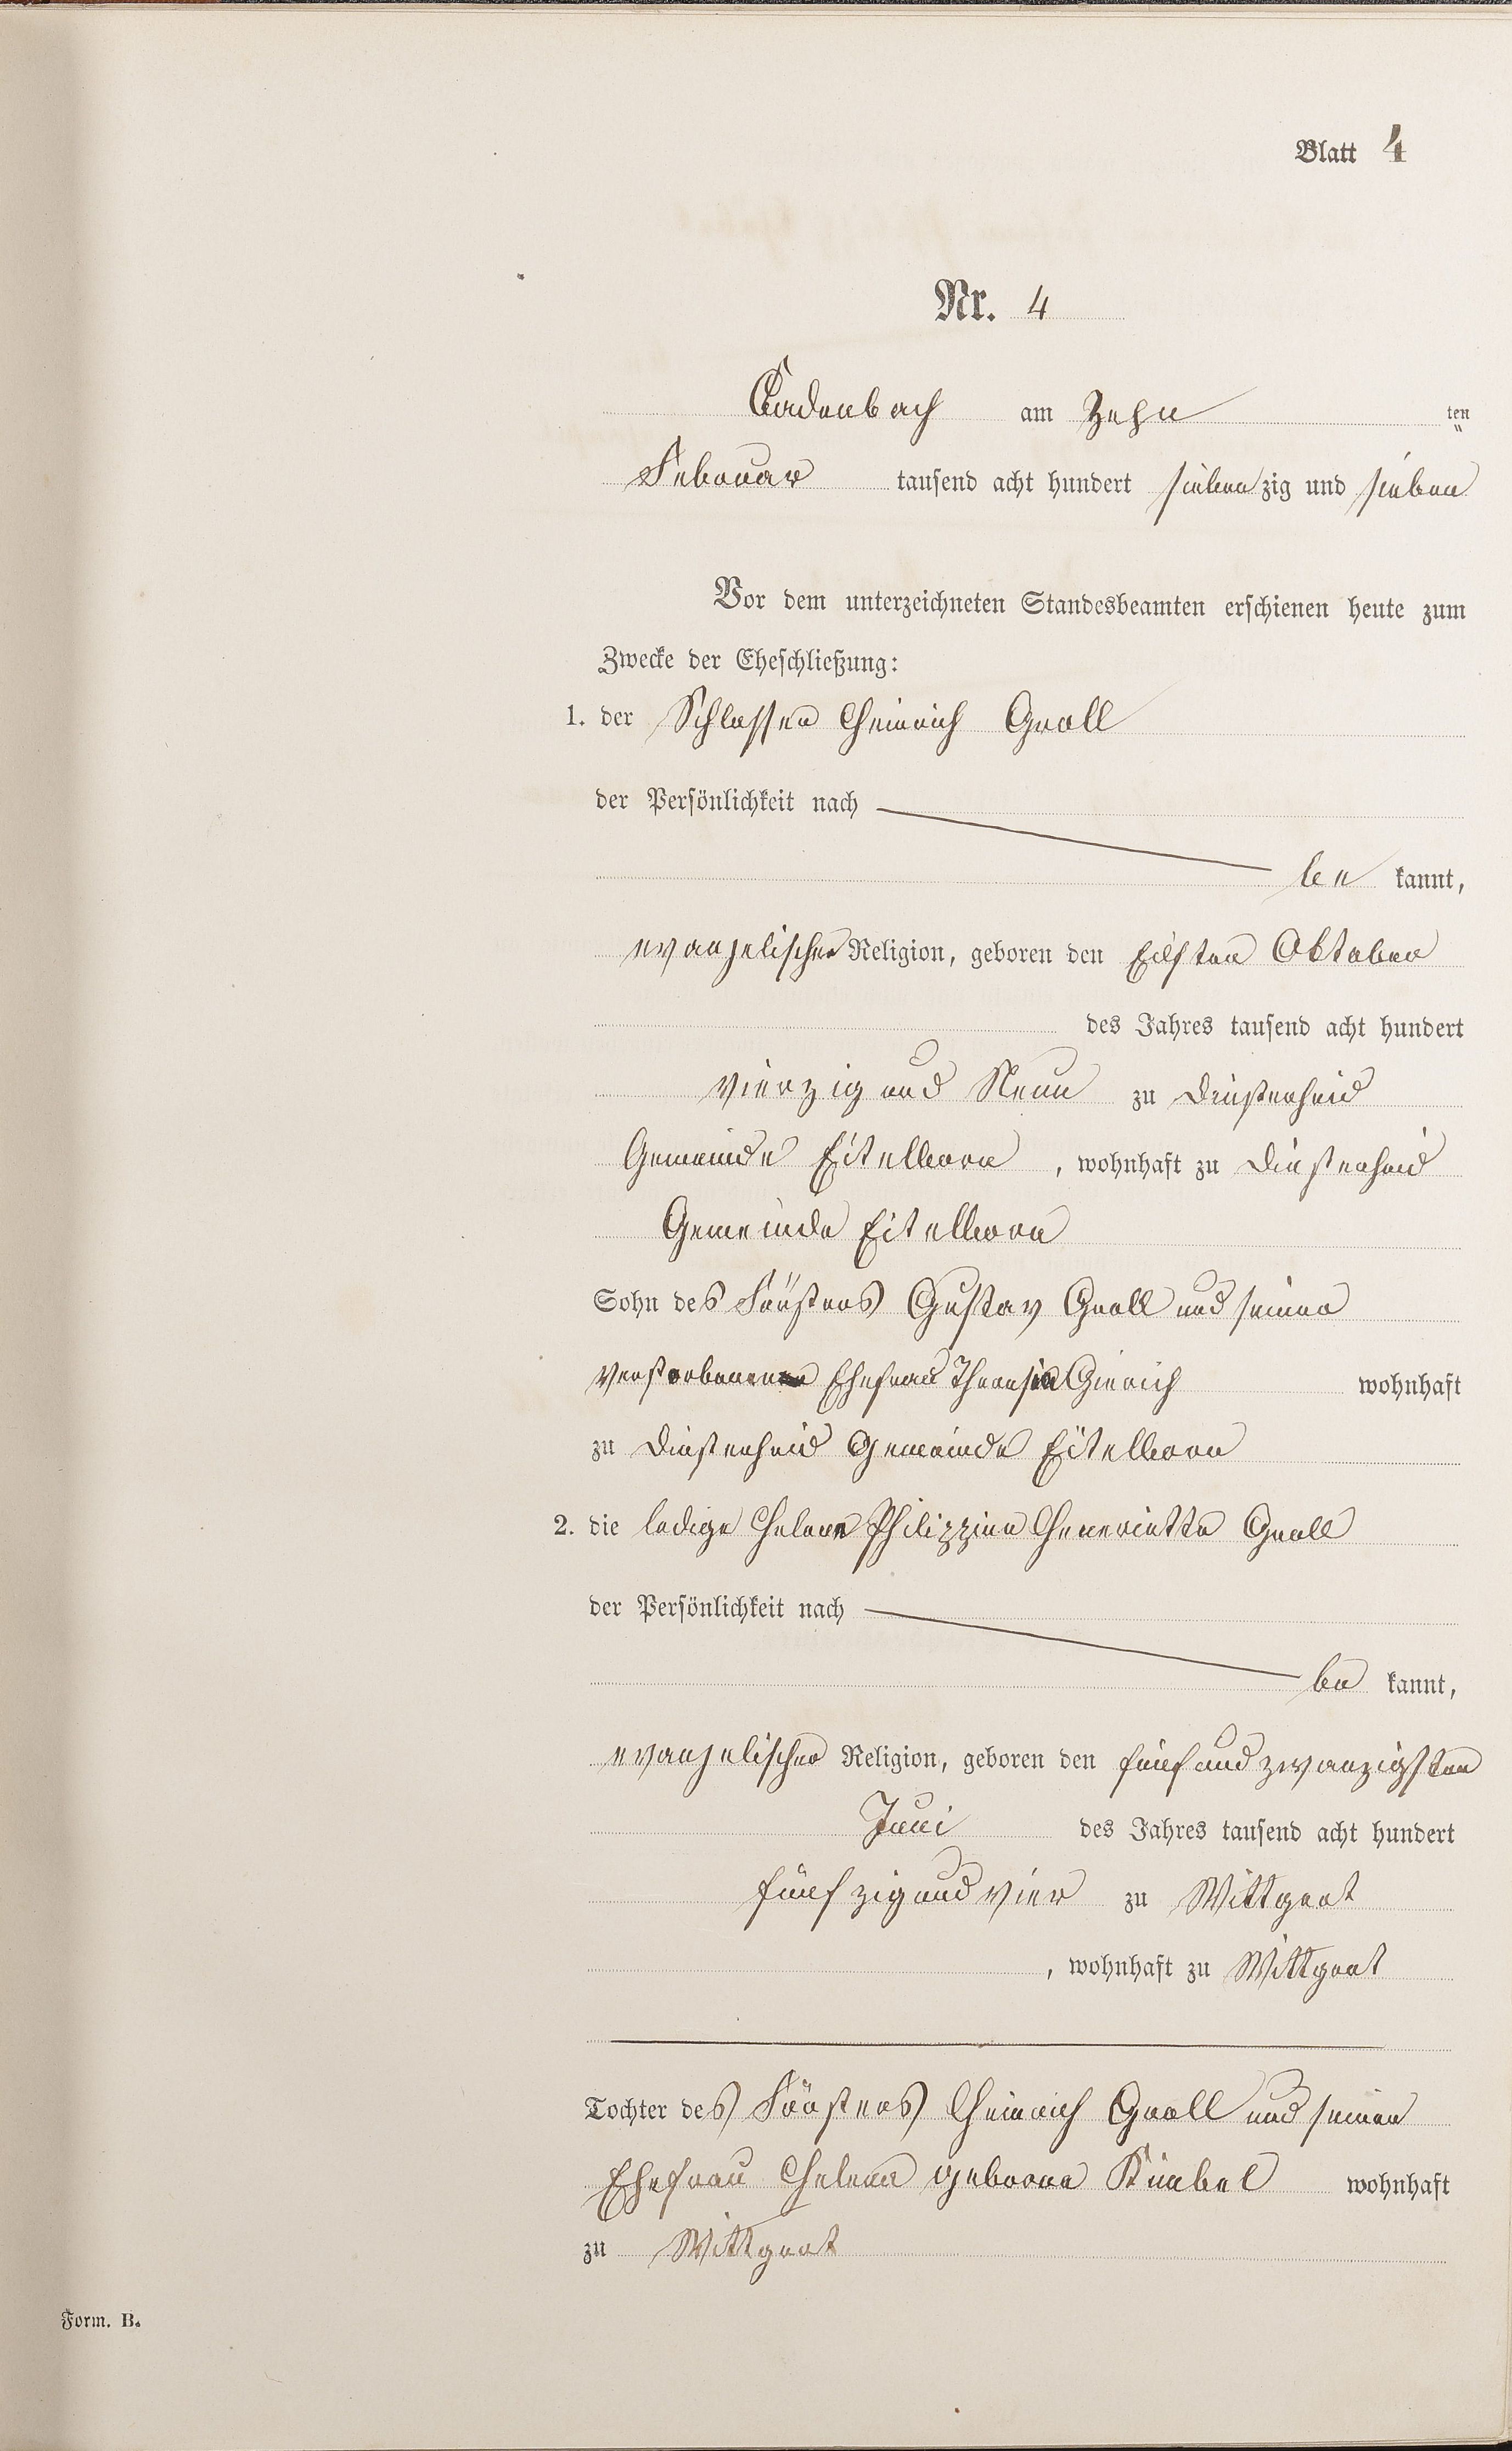 Blatt 4
Nr. 4
Cadenbach am Zehn ten
Februar tausend acht hundert siebenzig und sieben
Vor dem unterzeichneten Standesbeamten erschienen heute zum
Zwecke der Eheschließung:
1. der Schlosser Heinrich Groll
der Persönlichkeit nach
be kannt,
evangelischer Religion, geboren den Eilften Oktober
des Jahres tausend acht hundert
vierzig und Neun zu Dinsterheid
Gemeinde Eitelborn, wohnhaft zu Dinsterheid
Gemeinde Eitelborn
Sohn des Försters Gustav Groll und seiner
verstorbenen Ehefrau Theresia Gierich wohnhaft
zu Dinsterheid Gemeinde Eitelborn
2. die ledige Helene Philippine Henriette Groll
der Persönlichkeit nach
be kannt,
evangelischer Religion, geboren den fünf und zwanzigsten
Juni des Jahres tausend acht hundert
fünfzig und vier zu Wittgert
, wohnhaft zu Wittgert
Tochter des Försters Heinrich Groll und seiner
Ehefrau Helena geborne Künbel wohnhaft
zu Wittgert
Form. B.